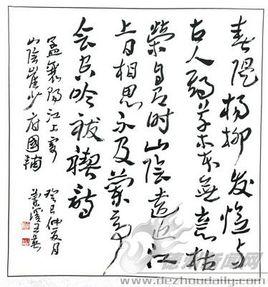 春隄楊柳發憶与
古人期草木本無意枯
榮自有时山陰遠近江
上日相思不及蘭亭
会空吟祓禊詩
孟襄陽江上寄
山陰崔少府國輔
癸巳仲夏月
www.dezhoudaily.com